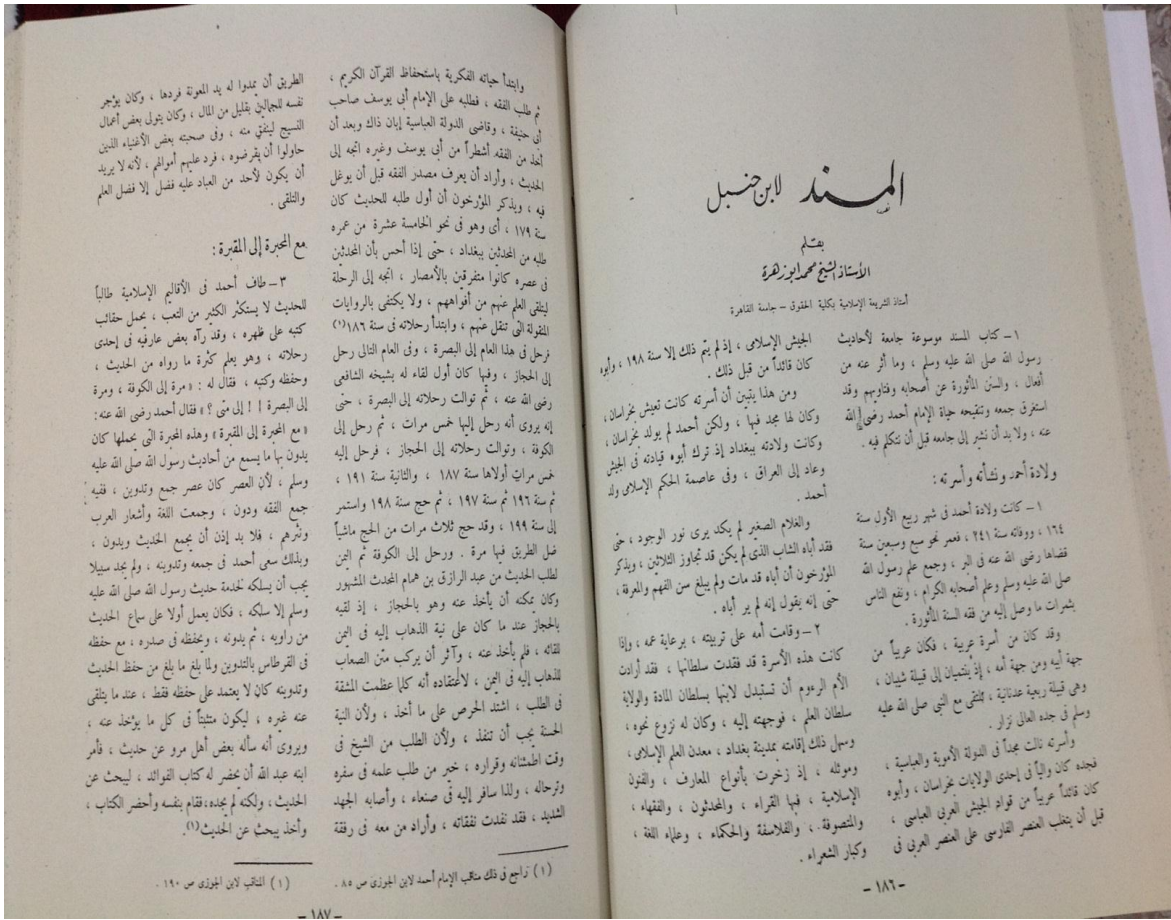 المسند لابن حنبل
بقلم
الأستاذ الشيخ محمد أبو زهرة
أستاذ الشريعة الإسلامية بكلية الحقوق – جامعة القاهرة
١ – كتاب المسند موسوعة جامعة لأحاديث
رسول الله صلى الله عليه وسلم ، وما أثر عنه من
أفعال ، والسنن المأثورة عن أصحابه وفتاويهم وقد
استغرق جمعه وتنقيحه حياة الإمام أحمد رضى الله
عنه ، ولا بد أن نشير إلى جامعه قبل أن نتكلم فيه .
ولادة أحمد ونشأته وأسرته :
١ – كانت ولادة أحمد فى شهر ربيع الأول سنة
١٦٤ ، ووفاته سنة ٢٤١ ، فعمر نحو سبع وسبعين سنة
قضاها رضى الله عنه فى البر ، وجمع علم رسول الله
صلى الله عليه وسلم وعلم أصحابه الكرام ، ونفع الناس
بثمرات ما وصل إليه من فقه السنة المأثورة .
وقد كان من أسرة عربية ، فكان عربياً من
جهة أبيه ومن جهة أمه ، إذ ينتميان إلى قبيلة شيبان ،
وهى قبيلة ربعية عدنانية ، تلتقى مع النبى صلى الله عليه
وسلم فى جده العالى نزار .
وأسرته نالت مجداً فى الدولة الأموية والعباسية ،
فجده كان والياً فى إحدى الولايات بخراسان ، وأبوه
كان قائداً عربياً من قواد الجيش العربى العباسى ،
قبل أن يتغلب العنصر الفارسى على العنصر العربى فى
الجيش الإسلامى ، إذ لم يتم ذلك إلا سنة ١٩٨ ، وأبوه
كان قائداً من قبل ذلك .
ومن هذا يتبين أن أسرته كانت تعيش بخراسان ،
وكان لها مجد فيها ، ولكن أحمد لم يولد بخراسان ،
وكانت ولادته ببغداد إذ ترك أبوه قيادته فى الجيش
وعاد إلى العراق ، وفى عاصمة الحكم الإسلامى ولد
أحمد .
والغلام الصغير لم يكد يرى نور الوجود ، حتى
فقد أباه الشاب الذى لم يكن قد تجاوز الثلاثين ، ويذكر
المؤرخون أن أباه قد مات ولم يبلغ سن الفهم والمعرفة ،
حتى إنه يقول إنه لم ير أباه .
٢ – وقامت أمه على تربيته ، برعاية عمه ، وإذا
كانت هذه الأسرة قد فقدت سلطانها ، فقد أرادت
الأم الرءوم أن تستبدل لابنها بسلطان المادة والولاية
سلطان العلم ، فوجهته إليه ، وكان له نزوع نحوه ،
وسهل ذلك إقامته بمدينة بغداد ، معدن العلم الإسلامى ،
وموئله ، إذ زخرت بأنواع المعارف ، والفنون
الإسلامية ، فيها القراء ، والمحدثون ، والفقهاء ،
والمتصوفة ، والفلاسفة والحكماء ، وعلماء اللغة ،
وكبار الشعراء .
– ١٨٦ –
وابتدأ حياته الفكرية باستحفاظ القرآن الكريم ،
ثم طلب الفقه ، فطلبه على الإمام أبى يوسف صاحب
أبى حنيفة ، وقاضى الدولة العباسية إبان ذاك وبعد أن
أخذ من الفقه أشطراً من أبى يوسف وغيره اتجه إلى
الحديث ، وأراد أن يعرف مصدر الفقه قبل أن يوغل
فيه ، ويذكر المؤرخون أن أول طلبه للحديث كان
سنة ١٧٩ ، أى وهو فى نحو الخامسة عشرة من عمره
طلبه من المحدثين ببغداد ، حتى إذا أحس بأن المحدثين
فى عصره كانوا متفرقين بالأمصار ، اتجه إلى الرحلة
ليتلقى العلم عنهم من أفواههم ، ولا يكتفى بالروايات
المنقولة التى تنقل عنهم ، وابتدأ رحلاته فى سنة ١٨٦(١)
فرحل فى هذا العام إلى البصرة ، وفى العام التالى رحل
إلى الحجاز ، وفيها كان أول لقاء له بشيخه الشافعى
رضى الله عنه ، ثم توالت رحلاته إلى البصرة ، حتى
إنه يروى أنه رحل إليها خمس مرات ، ثم رحل إلى
الكوفة ، وتوالت رحلاته إلى الحجاز ، فرحل إليه
خمس مرات أولاها سنة ١٨٧ ، والثانية سنة ١٩١ ،
ثم سنة ١٩٦ ثم سنة ١٩٧ ، ثم حج سنة ١٩٨ واستمر
إلى سنة ١٩٩ ، وقد حج ثلاث مرات من الحج ماشياً
ضل الطريق فيها مرة . ورحل إلى الكوفة ثم اليمن
لطلب الحديث من عبد الرازق بن همام المحدث المشهور
وكان يمكنه أن يأخذ عنه وهو بالحجاز ، إذ لقيه
بالحجاز عند ما كان على نية الذهاب إليه فى اليمن
للقائه ، فلم يأخذ عنه ، وآثر أن يركب متن الصعاب
للذهاب إليه فى اليمن ، لاعتقاده أنه كلما عظمت المشقة
فى الطلب ، اشتد الحرص على ما أخذ ، ولأن النية
الحسنة يجب أن تنفذ ، ولأن الطلب من الشيخ فى
وقت اطمئنانه وقراره ، خير من طلب علمه فى سفره
وترحاله ، ولذا سافر إليه فى صنعاء ، وأصابه الجهد
الشديد ، فقد نفدت نفقاته ، وأراد من معه فى رفقة
(١) تراجع فى ذلك مناقب الإمام أحمد لابن الجوزى ص ٨٥ .
الطريق أن يمدوا له يد المعونة فردها ، وكان يؤجر
نفسه للجمالين بقليل من المال ، وكان يتولى بعض أعمال
النسيج لينفق منه ، وفى صحبته بعض الأغنياء الذين
حاولوا أن يقرضوه ، فرد عليهم أموالهم ، لأنه لا يريد
أن يكون لأحد من العباد عليه فضل إلا فضل العلم
والتلقى .
مع المحبرة إلى المقبرة :
٣ – طاف أحمد فى الأقاليم الإسلامية طالباً
للحديث لا يستكثر الكثير من التعب ، يحمل حقائب
كتبه على ظهره ، وقد رآه بعض عارفيه فى إحدى
رحلاته ، وهو يعلم كثرة ما رواه من الحديث ،
وحفظه وكتبه ، فقال له : « مرة إلى الكوفة ، ومرة
إلى البصرة ! ! إلى متى ؟ » فقال أحمد رضى الله عنه :
« مع المحبرة إلى المقبرة » وهذه المحبرة التى يحملها كان
يدون بها ما يسمع من أحاديث رسول الله صلى الله عليه
وسلم ، لأن العصر كان عصر جمع وتدوين ، ففيه
جمع الفقه ودون ، وجمعت اللغة وأشعار العرب
ونثرهم ، فلا بد إذن أن يجمع الحديث ويدون ،
وبذلك سعى أحمد فى جمعه وتدوينه ، ولم يجد سبيلا
يجب أن يسلكه لخدمة حديث رسول الله صلى الله عليه
وسلم إلا سلكه ، فكان يعمل أولا على سماع الحديث
من راويه ، ثم يدونه ، ويحفظه فى صدره ، مع حفظه
فى القرطاس بالتدوين ولما بلغ ما بلغ من حفظ الحديث
وتدوينه كان لا يعتمد على حفظه فقط ، عند ما يتلقى
عنه غيره ، ليكون متثبتاً فى كل ما يؤخذ عنه ،
ويروى أنه سأله بعض أهل مرو عن حديث ، فأمر
ابنه عبد الله أن يحضر له كتاب الفوائد ، ليبحث عن
الحديث ، ولكنه لم يجده ، فقام بنفسه وأحضر الكتاب ،
وأخذ يبحث عن الحديث(١).
(١) المناقب لابن الجوزى ص ١٩٠ .
– ١٨٧ –